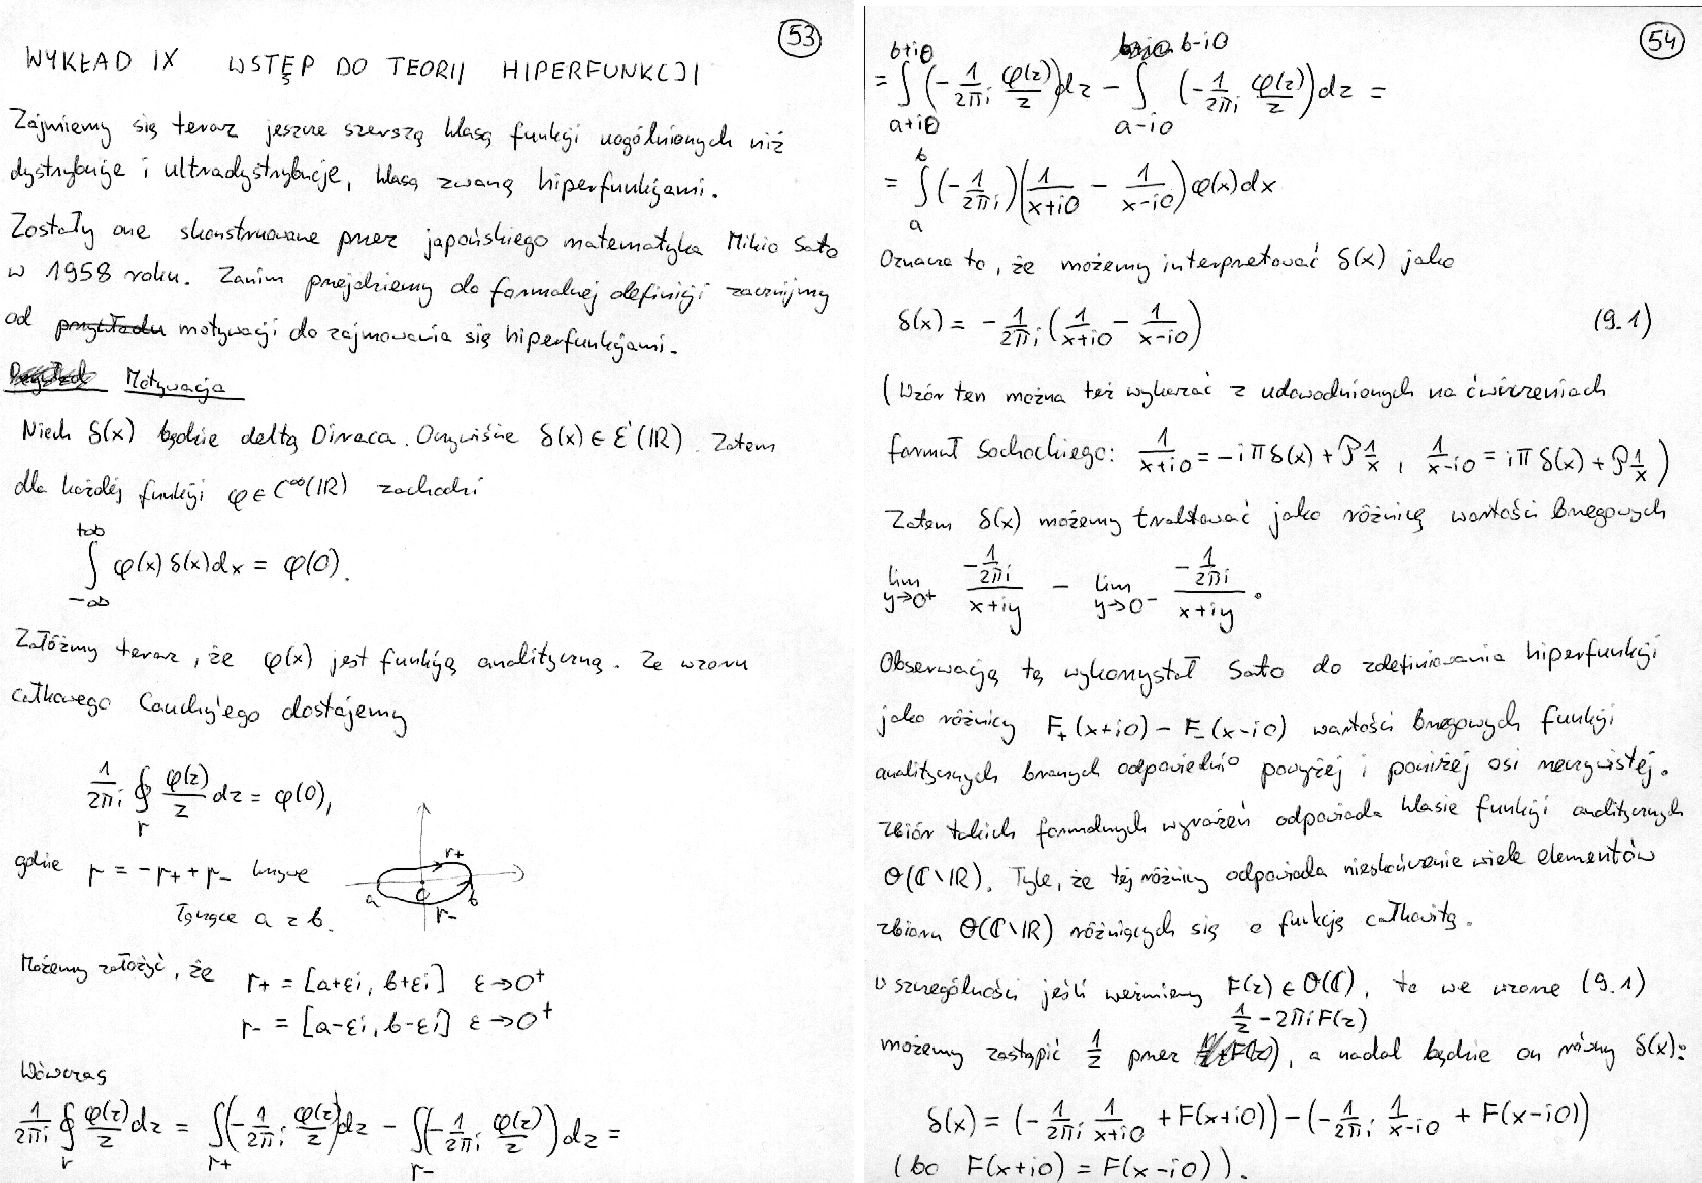 53
WYKŁAD IX WSTĘP DO TEORII HIPERFUNKCJI
Zajmiemy się teraz jeszcze szerszą klasą funkcji uogólnionych niż
dystrybucje i ultradystrybucje, klasą zwaną hiperfunkcjami.
Zostały one skonstruowane przez japońskiego matematyka Mikio Sato
w 1958 roku. Zanim przejdziemy do formalnej definicji zacznijmy
od przykładu motywacji do zajmowania się hiperfunkcjami.
Motywacja
Niech δ(x) będzie deltą Diraca. Oczywiście δ(x) ∈ ℰ'(ℝ). Zatem
dla każdej funkcji φ ∈ C^∞(ℝ) zachodzi
∫_{-∞}^{+∞} φ(x) δ(x) dx = φ(0).
Załóżmy teraz, że φ(x) jest funkcją analityczną. Ze wzoru
całkowego Cauchy'ego dostajemy
1/(2πi) ∮_Γ φ(z)/z dz = φ(0),
gdzie Γ = -Γ₊ + Γ₋ krzywe
łączące a z b.
Γ+
a 0 b
Γ-
Możemy założyć, że Γ+ = [a+εi, b+εi] ε→0⁺
Γ- = [a-εi, b-εi] ε→0⁺
Wówczas
1/(2πi) ∮_Γ φ(z)/z dz = ∫_{Γ+} (-1/(2πi) φ(z)/z) dz - ∫_{Γ-} (-1/(2πi) φ(z)/z) dz =
54
= ∫_{a+i0}^{b+i0} (-1/(2πi) φ(z)/z) dz - ∫_{a-i0}^{b-i0} (-1/(2πi) φ(z)/z) dz =
= ∫_a^b (-1/(2πi)) (1/(x+i0) - 1/(x-i0)) φ(x) dx
Oznacza to, że możemy interpretować δ(x) jako
δ(x) = -1/(2πi) (1/(x+i0) - 1/(x-i0)) (9.1)
(Wzór ten można też wykazać z udowodnionych na ćwiczeniach
formuł Sochockiego: 1/(x+i0) = -iπδ(x) + 𝒫 1/x, 1/(x-i0) = iπδ(x) + 𝒫 1/x)
Zatem δ(x) możemy traktować jako różnicę wartości brzegowych
lim_{y→0⁺} (-1/(2πi))/(x+iy) - lim_{y→0⁻} (-1/(2πi))/(x+iy).
Obserwację tę wykorzystał Sato do zdefiniowania hiperfunkcji
jako różnicy F₊(x+i0) - F₋(x-i0) wartości brzegowych funkcji
analitycznych branych odpowiednio powyżej i poniżej osi rzeczywistej.
Zbiór takich formalnych wyrażeń odpowiada klasie funkcji analitycznych
𝒪(ℂ\ℝ). Tyle, że tej różnicy odpowiada nieskończenie wiele elementów
zbioru 𝒪(ℂ\ℝ) różniących się o funkcję całkowitą.
W szczególności jeśli weźmiemy F(z) ∈ 𝒪(ℂ), to we wzorze (9.1)
możemy zastąpić 1/z przez 1/z - 2πiF(z), a nadal będzie on równy δ(x):
δ(x) = (-1/(2πi) 1/(x+i0) + F(x+i0)) - (-1/(2πi) 1/(x-i0) + F(x-i0))
(bo F(x+i0) = F(x-i0)).